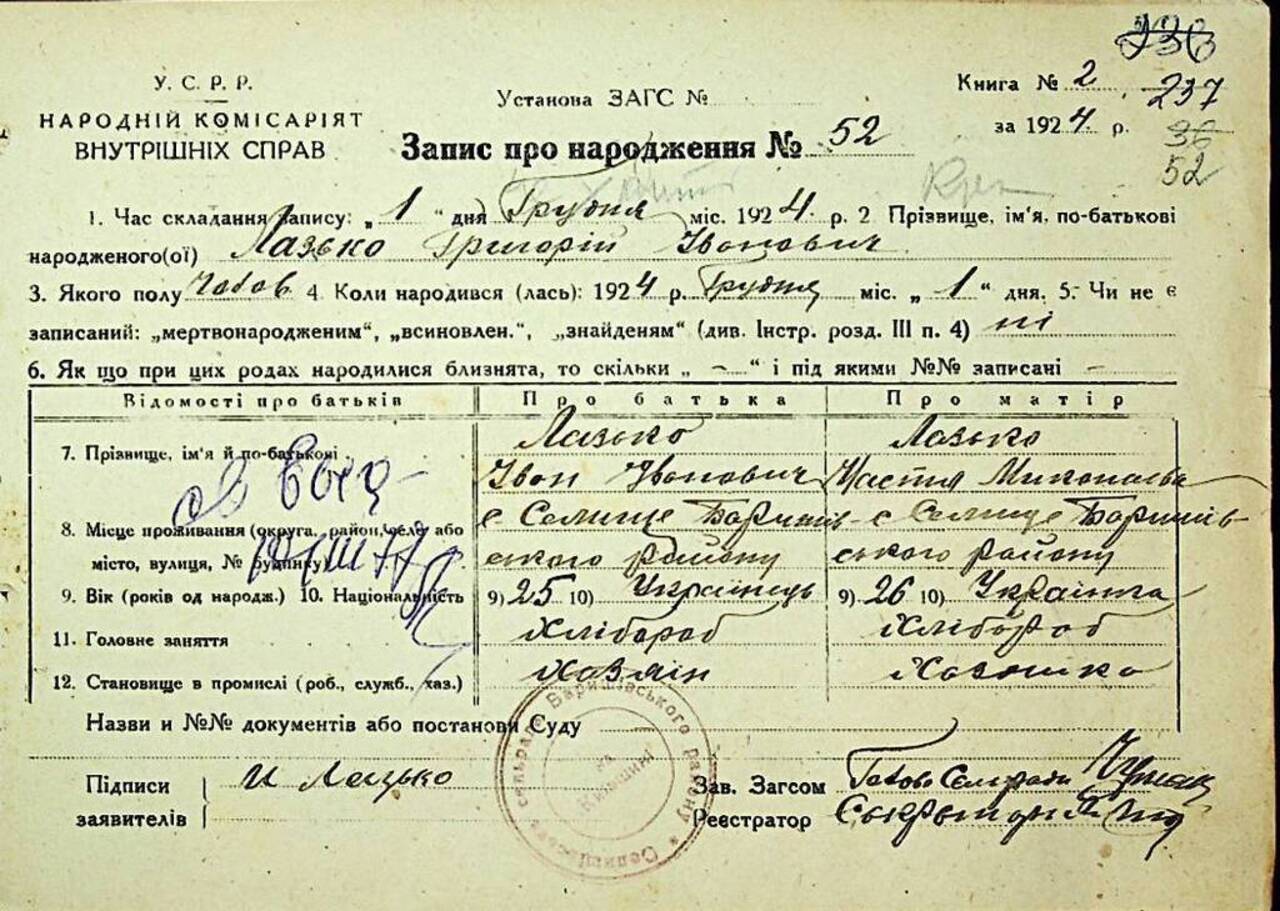 236
У. С. Р. Р.
НАРОДНІЙ КОМІСАРІЯТ
ВНУТРІШНІХ СПРАВ
Установа ЗАГС №
Книга № 2
237
за 1924 р.
36
52
Запис про народження № 52
1. Час складання запису: „ 1 “ дня Грудня міс. 1924 р. 2 Прізвище, ім'я, по-батькові
народженого(ої) Лазько Григорій Іванович
3. Якого полу Чолов 4. Коли народився (лась): 1924 р. Грудня міс. „ 1 “ дня. 5. Чи не є
записаний: „мертвонародженим“, „всиновлен.", „знайденям“ (див. Інстр. розд. III п. 4) ні
6. Як що при цих родах народилися близнята, то скільки „ - “ і під якими №№ записані -
Відомості про батьків Про батька Про матір
7. Прізвище, ім'я й по-батькові Лазько Лазько
Іван Іванович Настя Миколаєва
8. Місце проживання (округа, район, село або с Селище Баришів- с Селище Баришів-
місто, вулиця, № будинку) ського району ського району
9. Вік (років од народж.) 10. Національність 9) 25 10) Українець 9) 26 10) Українка
11. Головне заняття Хлібороб Хлібороб
12. Становище в промислі (роб., служб., хаз.) Хазяін Хазяйка
Назви и №№ документів або постанови Суду
Підписи заявителів И Лазько
Зав. Загсом Голова Сельради
Реєстратор Секретар
Селищівська сільрада Баришівського району
на Київщині